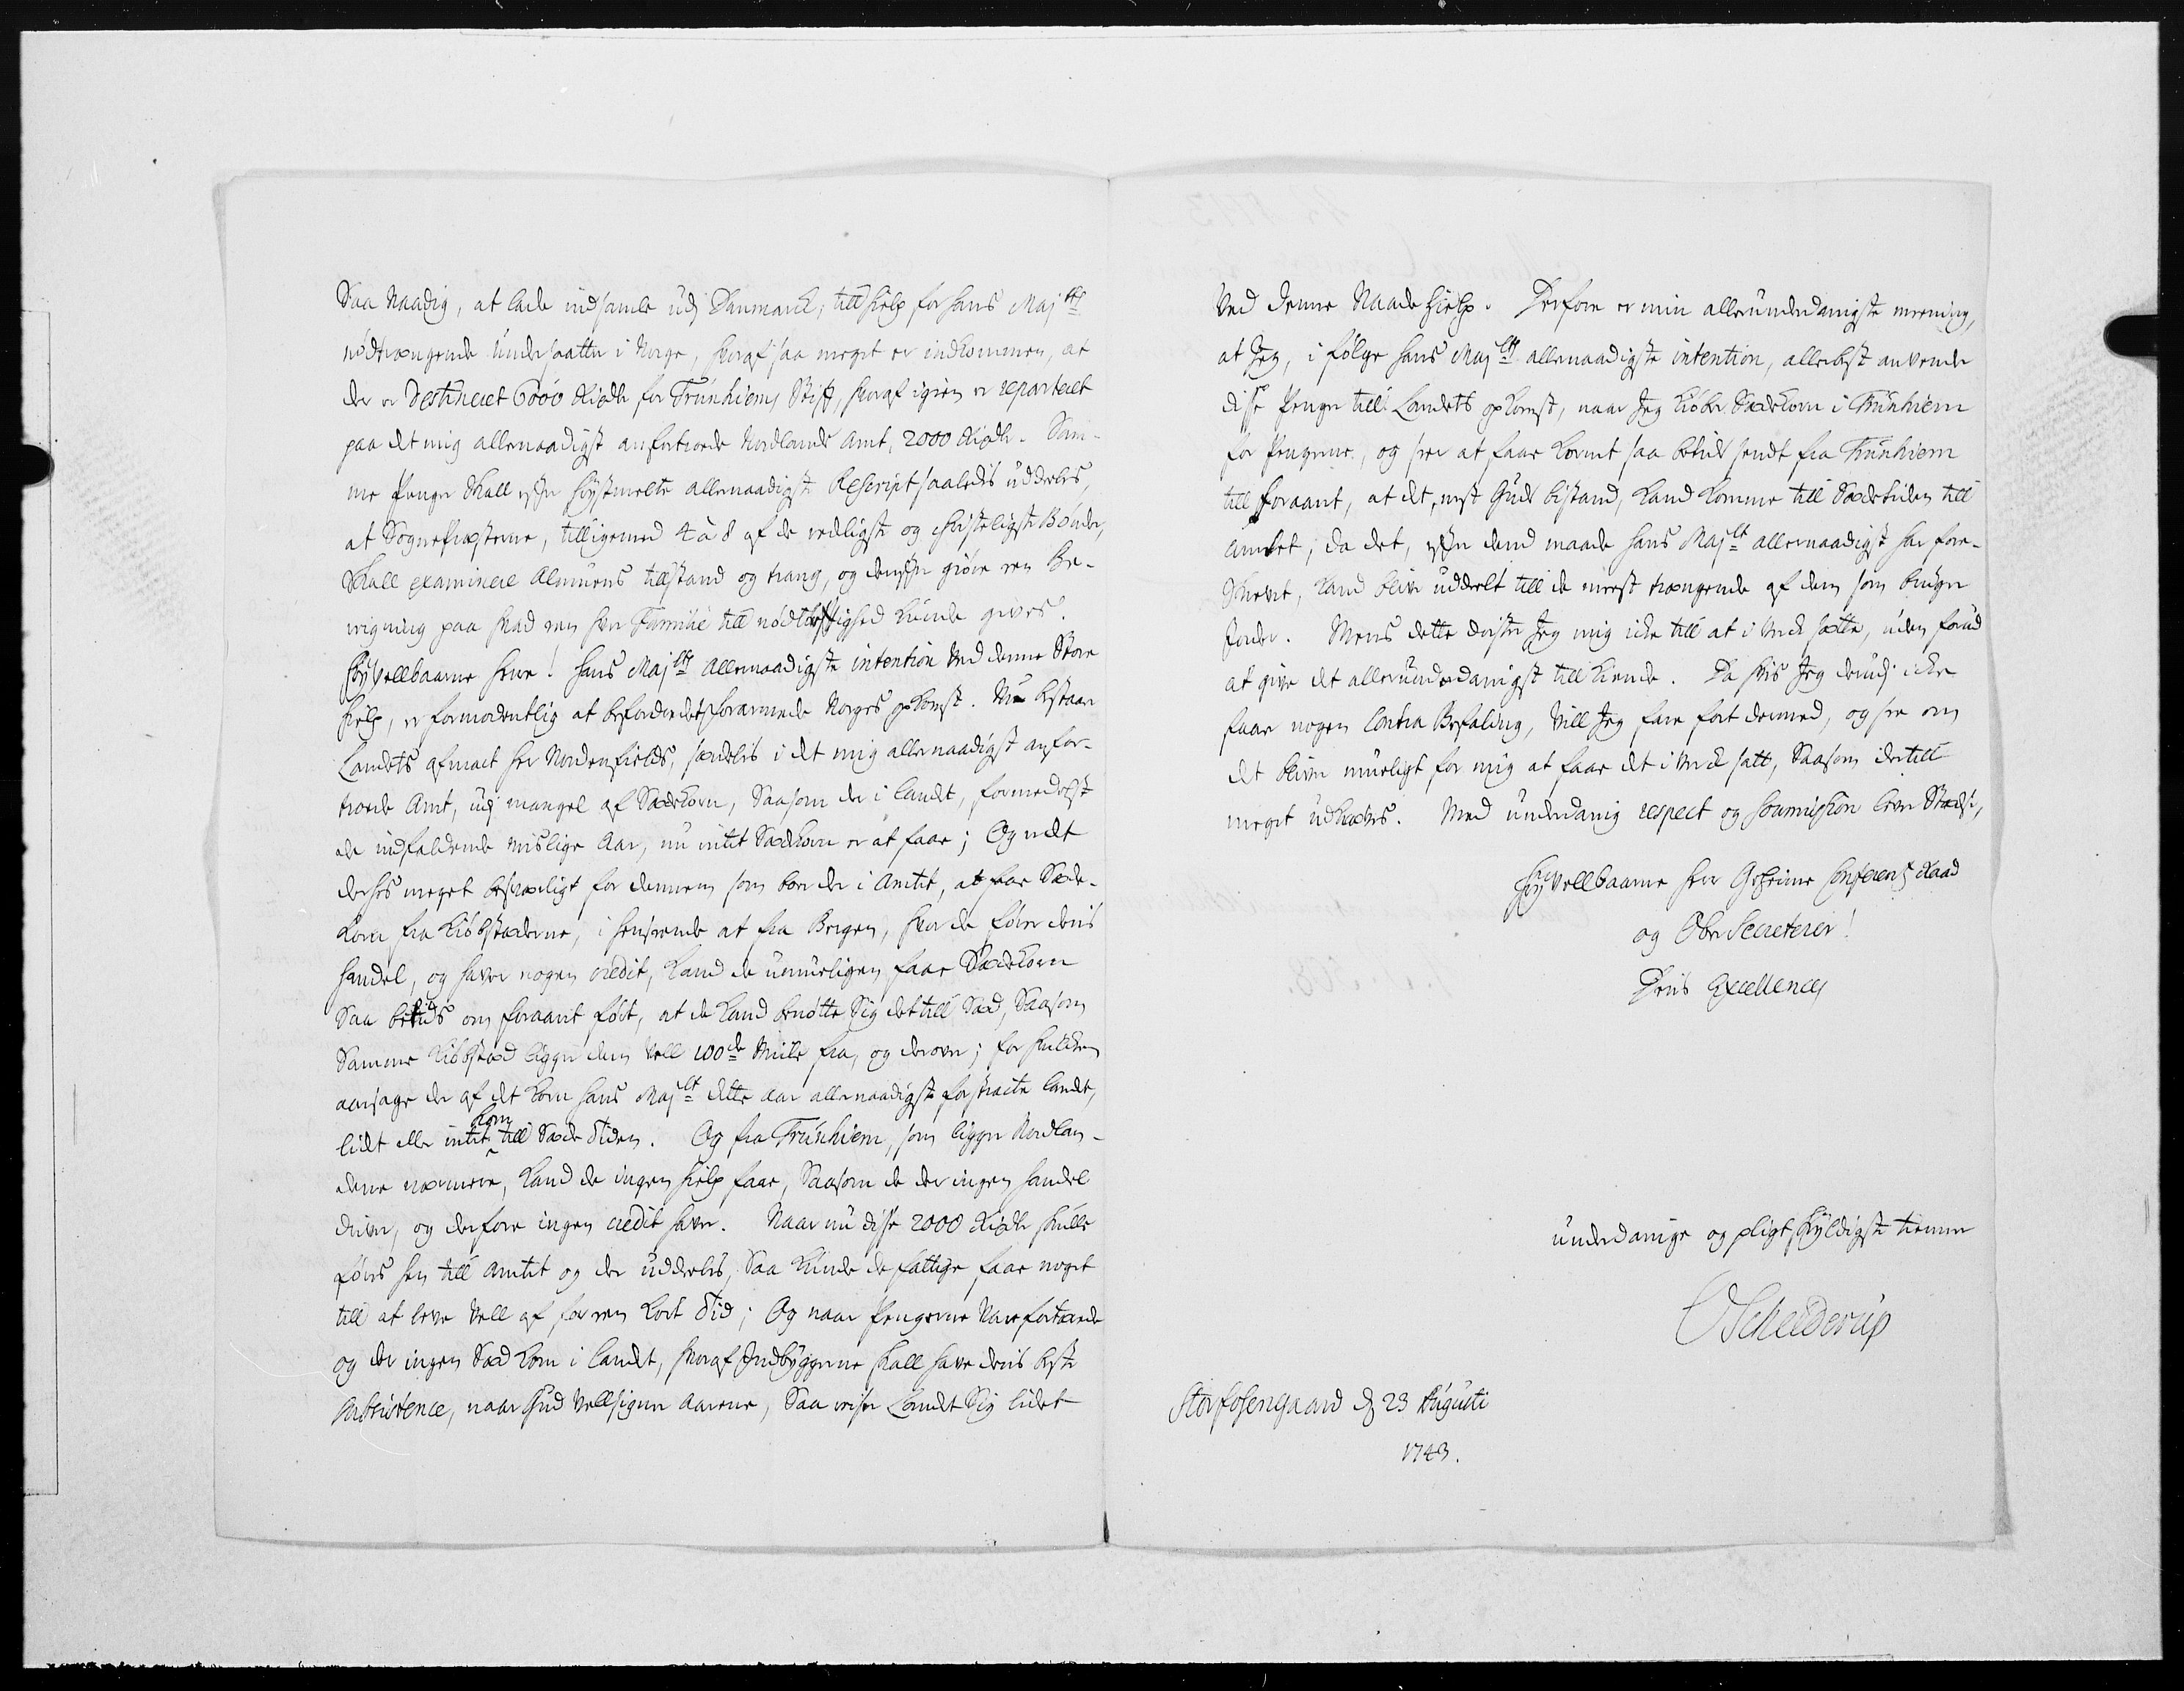 Saa Naadig, at lade indsamle udj Danmarck, till hielp for hans Maj:ts
nødtrængende Undersaatter i Norge, hvoraf saa meget er indkommen, at
der er destineret 6000 Rixdlr for Trunhiems Stift, hvoraf igien er reparteret
paa det mig allernaadigst anfortroede Nordlands Amt, 2000 Rixdlr. Sam-
me Penger skall efter høystmelte allernaadigste Rescript saaledis uddeelis,
at Sognepræsterne, tilligemed 4 à 8 af de redligste og christeligste Bønder,
Skall examinere Almuens tillstand og trang, og derefter giøre een Be-
regning paa hvad een hver Familie till nødtørftighed kunde gives.
HøyVellbaarne Herre! Hans Maj:ts allernaadigste intention Ved denne Store
hielp, er formodentlig at befordre det forarmede Norges opkomst. Nu bestaar
Landets afmact her Nordenfields, særdelis i det mig allernaadigst anfor-
troede Amt, udj mangel af Sædekorn, Saasom der i landet, formedelst
de indfaldende mislige Aar, nu intet Sædekorn er at faae; Og med
derhos meget besværligt for dennem som boer der i Amtet, at faae Sæde-
korn fra Kiøbstæderne, i henseende at fra Bergen, hvor de fører deris
handel, og haver nogen credit, kand de umueligen faae Sædekorn
Saa betids om foraaret ført, at de kand benøtte Sig det till Sæd, Saasom
Samme kiøbstæd ligger dem Vell 100de Miile fra, og derover; for hvilken
aarsage der af det korn Hans Maj:t dette aar allernaadigst forstracte landet,
lidt eller intet kom till Sæde tiden. Og fra Trunhiem, som ligger Nordlan-
dene nærmere, kand de ingen hielp faae, Saasom de der ingen handel
driver, og derfore ingen credit haver. Naar nu disse 2000 Rixdlr skulle
føres hen till Amtet og der uddeelis, Saa kunde de fattige faae noget
till at leve Vell af for een kort tid; Og naar Pengerne Vare fortærede
og der ingen Sæd kom i landet, hvoraf Indbyggerne skall have deris beste
Subsistence, naar Gud Vellsigner Aarene, Saa reiser Landet Sig lidet
Ved denne Naade Hielp. Derfore er min allerunderdanigste meening,
at Jeg, i følge hans Maj:ts allernaadigste intention, allerbest anvender
disse Penger till Landets opkomst, naar Jeg kiøber Sædekorn i Trunhiem
for Pengerne, og seer at faae kornet saa betids sendt fra Trunhiem
till foraaret, at det, nest Guds bistand, kand komme till Sædetiden till
Amtet; da det, efter dend maade Hans Maj:t allernaadigst har fore-
skrevet, kand blive uddeelt till de meest trængende af dem som bruger
Jorder. Mens dette drister Jeg mig icke till at i Verck sætte, uden forud
at give det allerunderdanigst till kiende. Da hvis Jeg derudj icke
faar nogen Contra Befaling, Vill Jeg fare fort dermed, og see om
det bliver mueligt for mig at faae det i Verck satt, Saasom dertill
meget udkræves. Med underdanig respect og soumission lever Stædse,
HøyVellbaarne Herr Geheime Conferentz Raad
og Ober Secreterer!
Deris Excellences
underdanige og pligt skyldigste tienere
OSchelderup
Storfosengaard d 23 Augusti
1743.